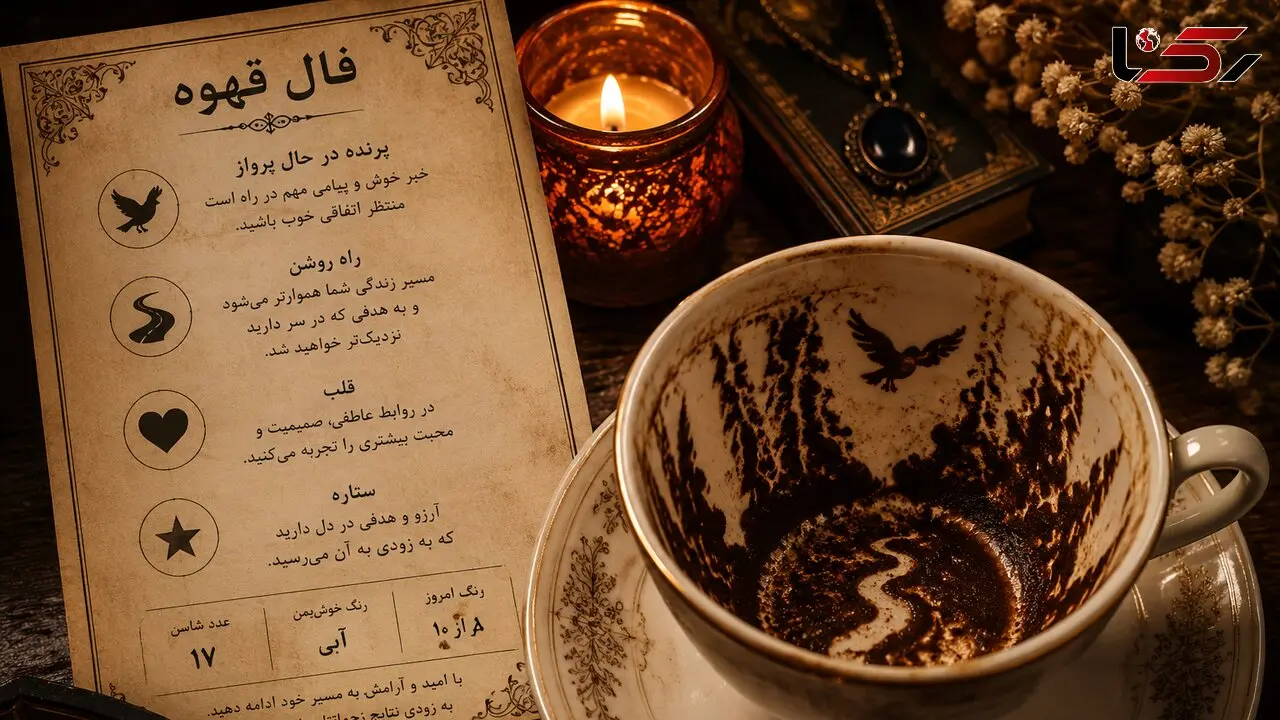 فال قهوه
پرنده در حال پرواز
خبر خوش و پیامی مهم در راه است
منتظر اتفاقی خوب باشید.
راه روشن
مسیر زندگی شما هموارتر می‌شود
و به هدفی که در سر دارید
نزدیک‌تر خواهید شد.
قلب
در روابط عاطفی، صمیمیت و
محبت بیشتری را تجربه می‌کنید.
ستاره
آرزو و هدفی در دل دارید
که به زودی به آن می‌رسید.
رنگ امروز
۸ از ۱۰
رنگ خوش‌یمن
آبی
عدد شاسن
۱۷
با امید و آرامش به مسیر خود ادامه دهید.
به زودی نتایج
رکنا